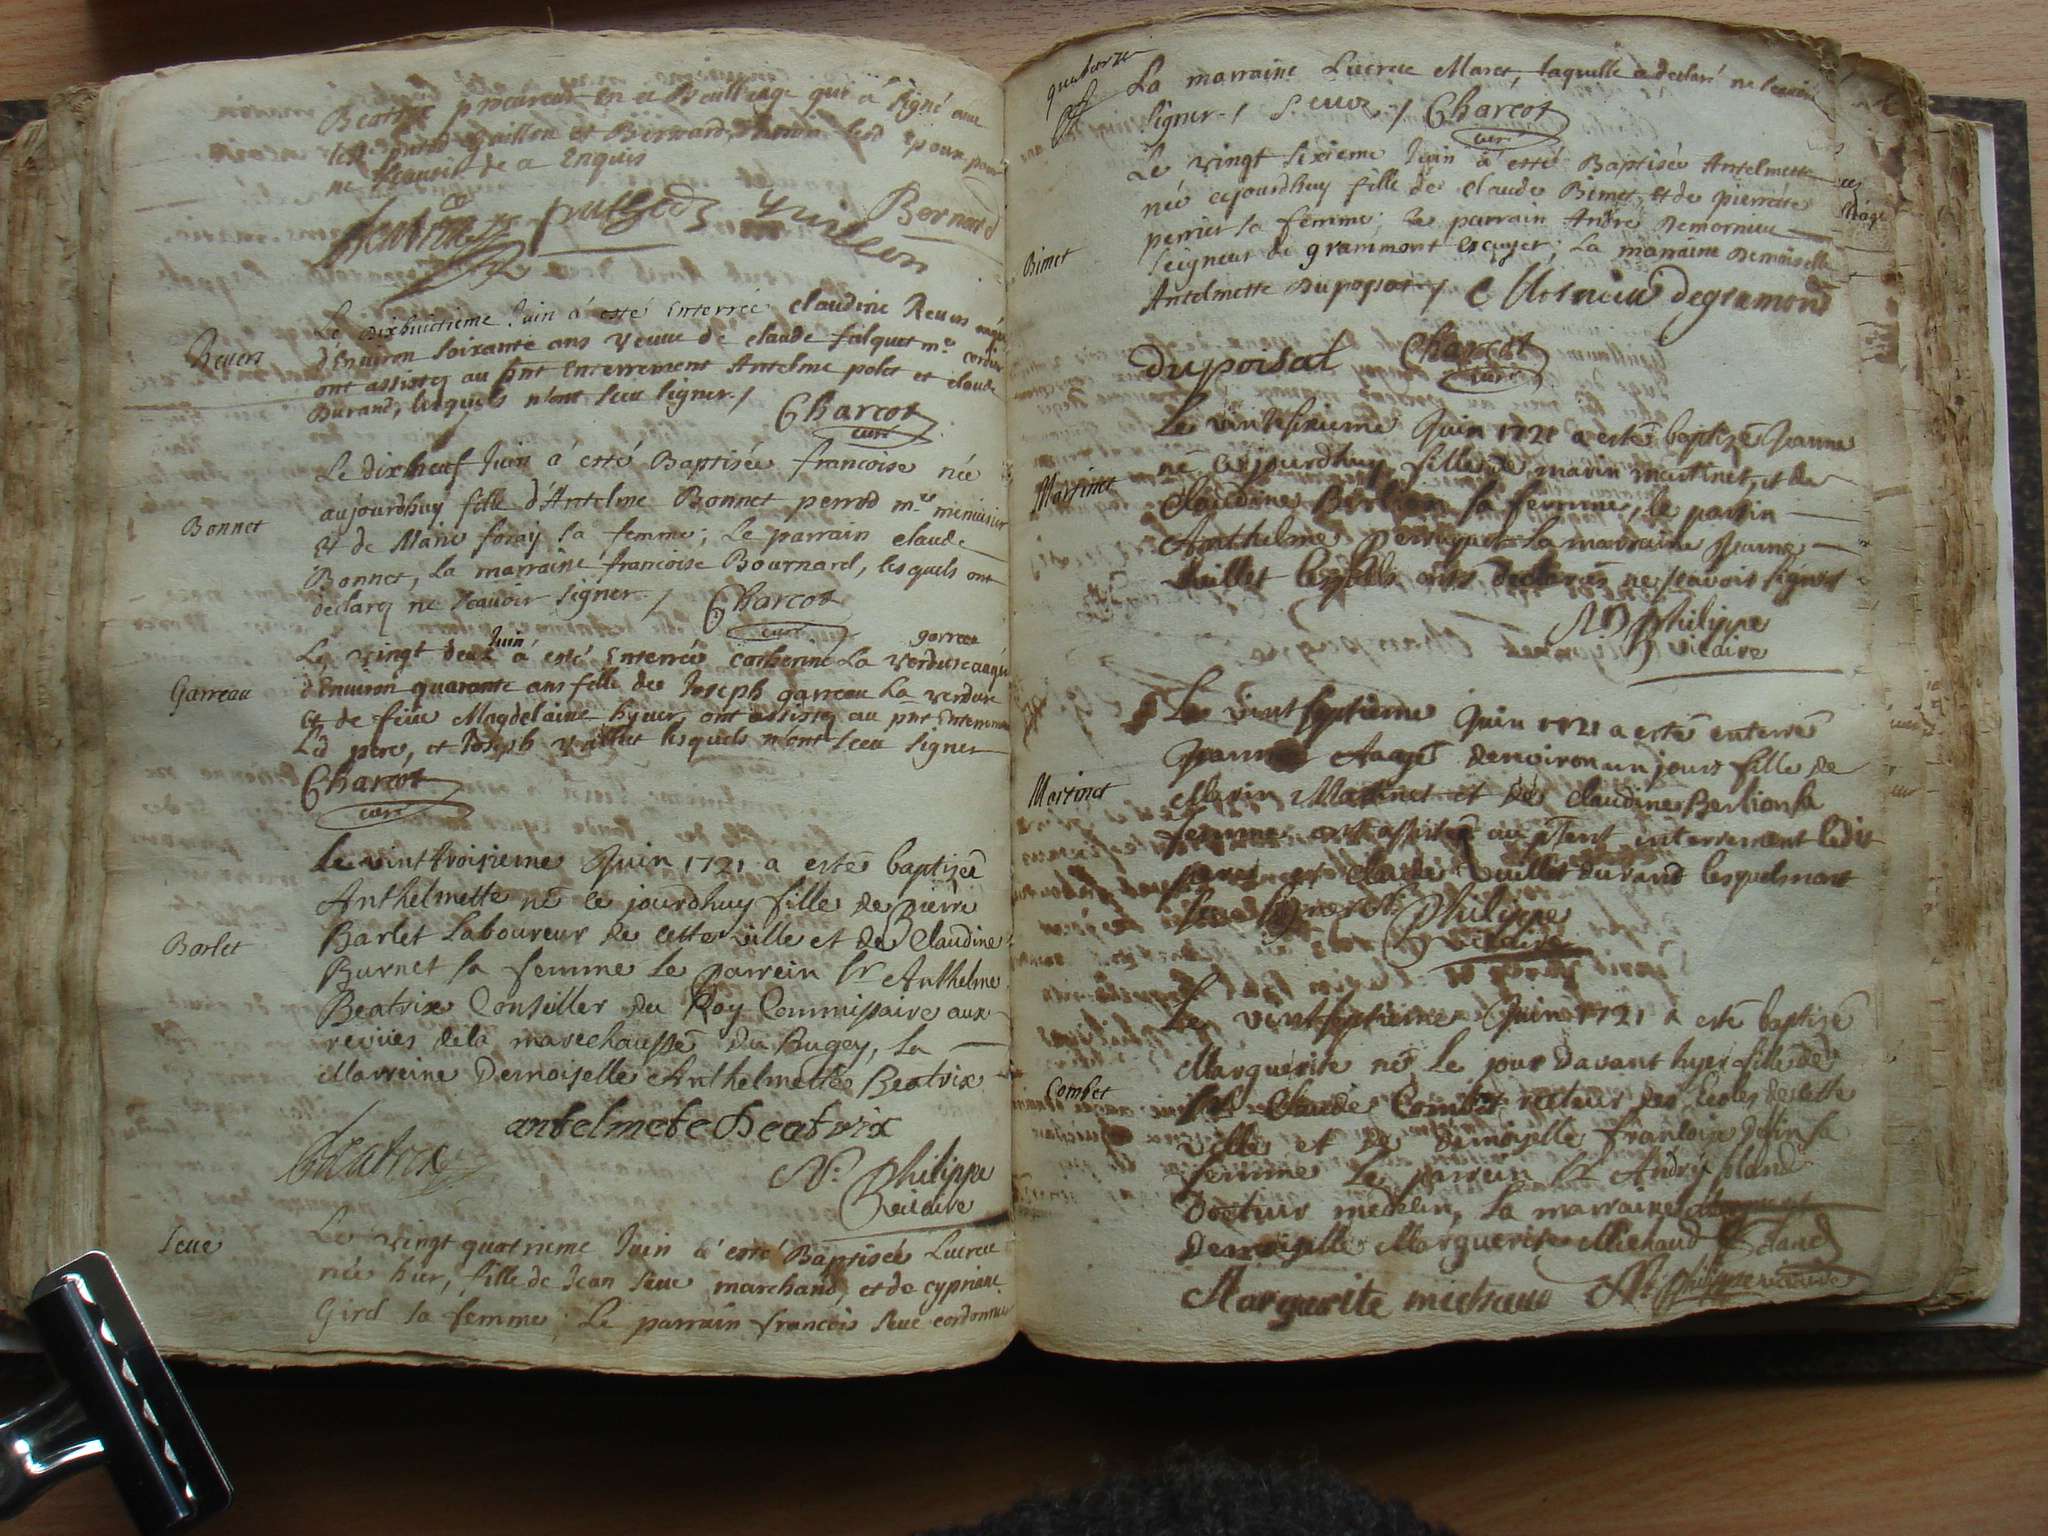 Beatrix procureur en ce Bailliage qui a signé avec
led Guillon et Bernard,
ne de ce Enquis
Bernard
Reuers
Le dixhuitieme Juin à esté Enterrée claudine Reuers
d'Environ soixante ans veuue de claude falquet m.e
ont assistez au pnt Enterrement Antelme polet et claude
Durand, lesquels n'ont sceu signer /
Charcot
curé
Bonnet
Le dixneuf Juin a esté Baptisée francoise née
aujourdhuy fille d'Antelme Bonnet perrod m.e menuisier
et de Marie foray sa femme; Le parrain claude
Bonnet, La marraine francoise Bournard, lesquels ont
declarez ne scauoir signer /
Charcot
curé
Garreau
Le vingt deux Juin a esté Enterrée catherine garreau La verdure
d'Environ quarante ans fille de Joseph garreau La verdure
et de feüe Magdelaine hyuer, ont assistez au pnt Enterrement
Led pere, et Joseph vuillet lesquels n'ont sceu signer
Charcot
curé
Barlet
Le vint troisieme Juin 1721 a esté baptizée
Anthelmette né ce jourdhuy fille de Pierre
Barlet Laboureur de cette ville et de Claudine
Burnet sa femme le parrein Sr Anthelme
Beatrix Conseiller du Roy Commissaire aux
reuües de la marechaussé du Bugey, La
Marreine Demoiselle Anthelmette Beatrix
antelmete Beatrix
Beatrix
N. Philippe
Vicaire
Seue
Le vingt quatrieme Juin à esté Baptisée Lucrece
née hier, fille de Jean Seue marchand, et de cypriane
Girel sa femme; Le parrain francois Seue cordonnier
quatorze
La marraine Lucrece Maret, laquelle a declaré ne scauoir
signer / Seuoz / Charcot
curé
Bimet
Le vingt sixieme Juin à esté Baptisée Antelmette
née cejourdhuy fille de claude Bimet, et de pierrette
perrier sa femme; Le parrain André Demornieu
seigneur de grammont escuyer; La marraine Demoiselle
Antelmette Dupoysat / Mornieu degramond
dupoisat
Charcot
curé
Martinet
Le vintesixieme Juin 1721 a esté baptizé Jeanne
né cejourdhuy fille de marin martinet, et de
Claudine Berlion sa femme, le parrin
Anthelme perruquet La marraine Jeanne
vuillet lesquels ont declarés ne scavoir signer
N Philippe
Vicaire
Martinet
Le vint septieme Juin 1721 a esté enterré
Jeanne Aagé denviron un jours fille de
Marin Martinet et de Claudine Berlion sa
femme ont assistés au psent interrement ledit
et Claude vuillet durand lesquels nont
sceu signer
Philippe
vicaire
Combet
Le vint septieme Juin 1721 a esté baptisé
Marguerite né Le jour davant hyer fille de
Sr Claude Combet recteur des Ecoles de cette
ville et de Demoiselle francoise
femme Le parrein Sr Andry
Docteur medecin, La marraine
Demoiselle Marguerite Michaud
Marguerite michaud
N. Philippe vicaire